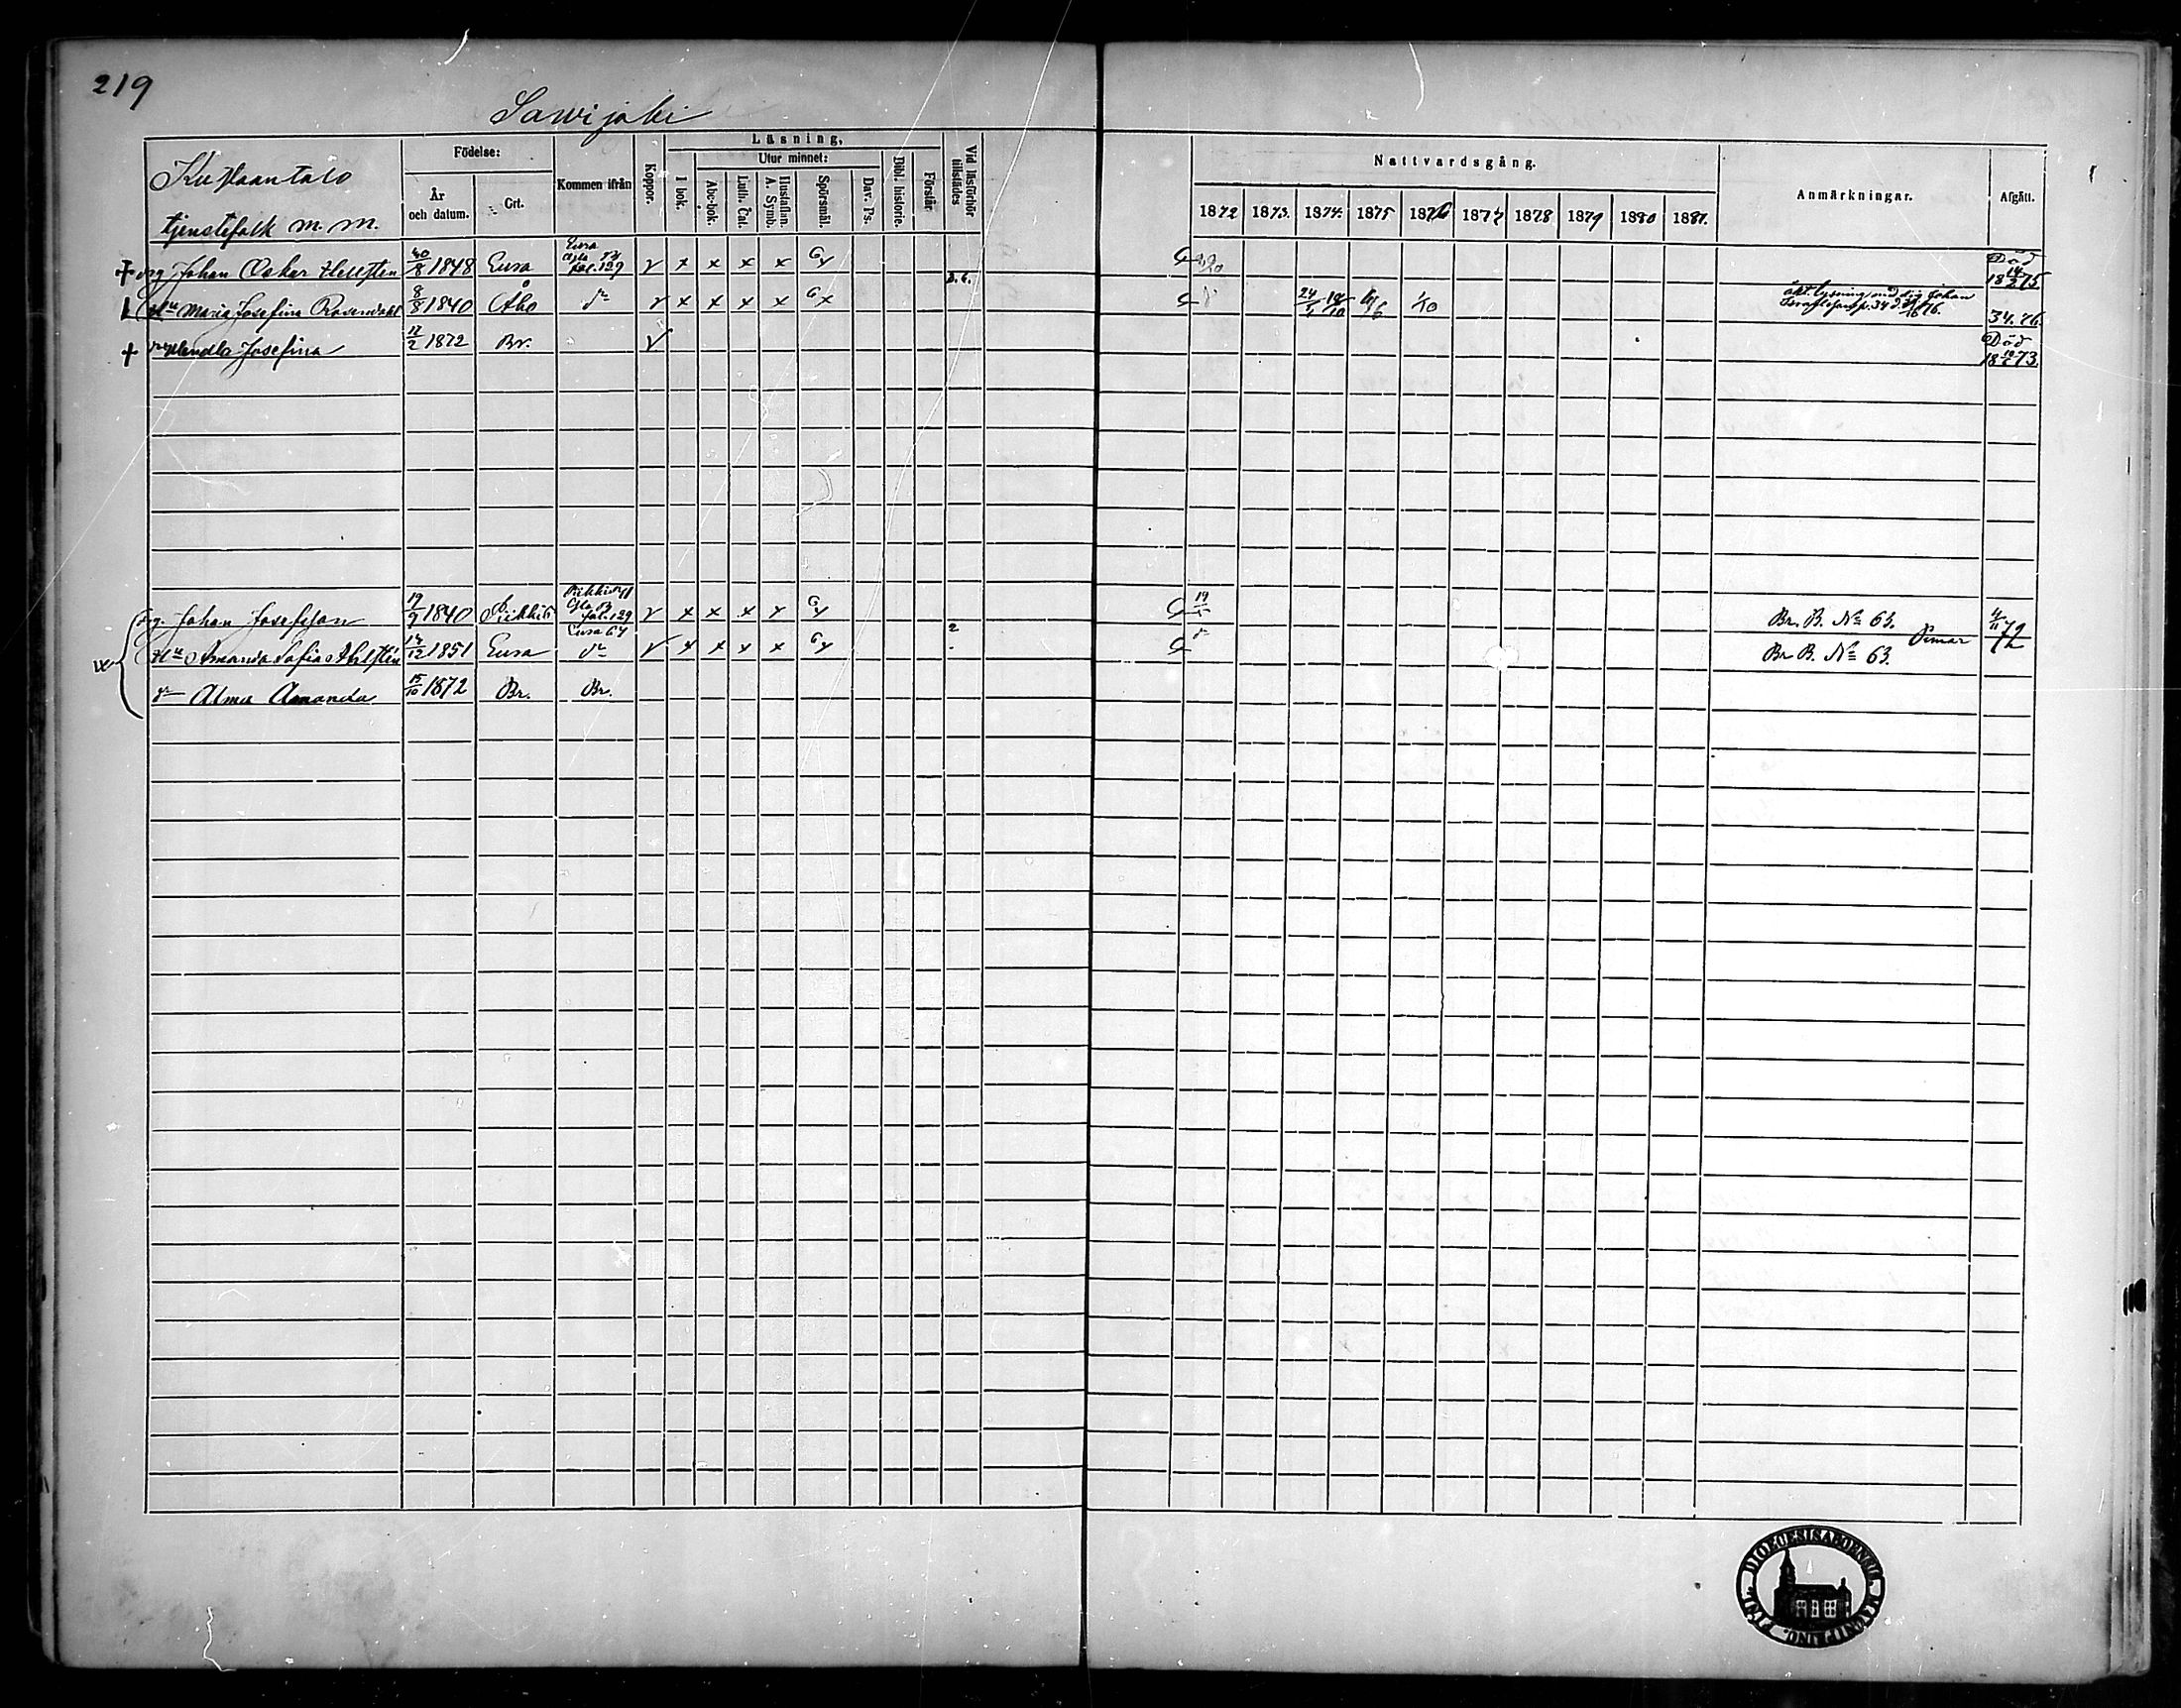 219
Sawijoki
Kustaantalo
tjenstefolk m. m.
Födelse:
År och datum.
Ort.
Kommen ifrån
Koppor.
Läsning,
I bok.
Utur minnet:
Abc-bok.
Luth. Cat.
Hustaflan. A. Symb.
Spörsmål.
Dav. Ps.
Bibl. historie.
Förstår.
Vid läsförhör tillstädes
Nattvardsgång.
1872 1873. 1874. 1875 1876 1877 1878 1879 1880 1881.
Anmärkningar.
Afgått.
+ drg Johan Oskar Hellsten 30/8 1848 Eura Eura fol. 129 G Död 18 14/2 75.
Hu Maria Josefina Rosendahl 8/8 1840 Åbo dº G 1/10 äkt. lysning med drg Johan p. 34 34. 76.
+ Josefina 12/2 1872 Br. Död 18 73.
drg. Johan Josefsson 19/9 1840 Piikkiö fol. 129 G 19/5 Br. B. Nº 63. 4/11 72
Hu Amanda Sofia Ahlsten 14/12 1851 Eura Eura 64 dº G Br B. Nº 63. Pemar
dr Alma Amanda 15/10 1872 Br. Br.